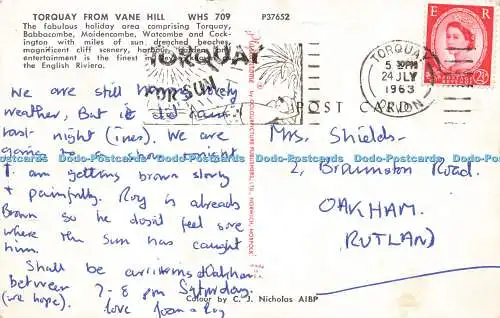 TORQUAY FROM VANE HILL WHS 709 P37652
The fabulous holiday area comprising Torquay,
Babbacombe, Maidencombe, Watcombe and Cock-
ington with miles of sun drenched beaches,
magnificent cliff scenery, harbour, gardens and
entertainment is the finest
the English Riviera.
TORQUAY
E R
TORQUAY
5 30PM
24 JLY
1963
DEVON
2½
POST CARD
We are still having lovely
weather, But it did rain
last night (Tues). We are
going to a show tonight
I am getting brown slowly
+ painfully. Roy is already
Brown so he dosn't feel sore
where the sun has caught
him.
Shall be arriving Oakham
between 7-8 pm Saturday.
(we hope).
love Joan & Roy
Mrs. Shields.
2, Braunston Road.
OAKHAM.
RUTLAND
Dodo-Postcards Dodo-Postcards Dodo-Postcards Dodo-Postcards Dodo-Postcards Dodo-Postcards
Colour by C. J. Nicholas AIBP